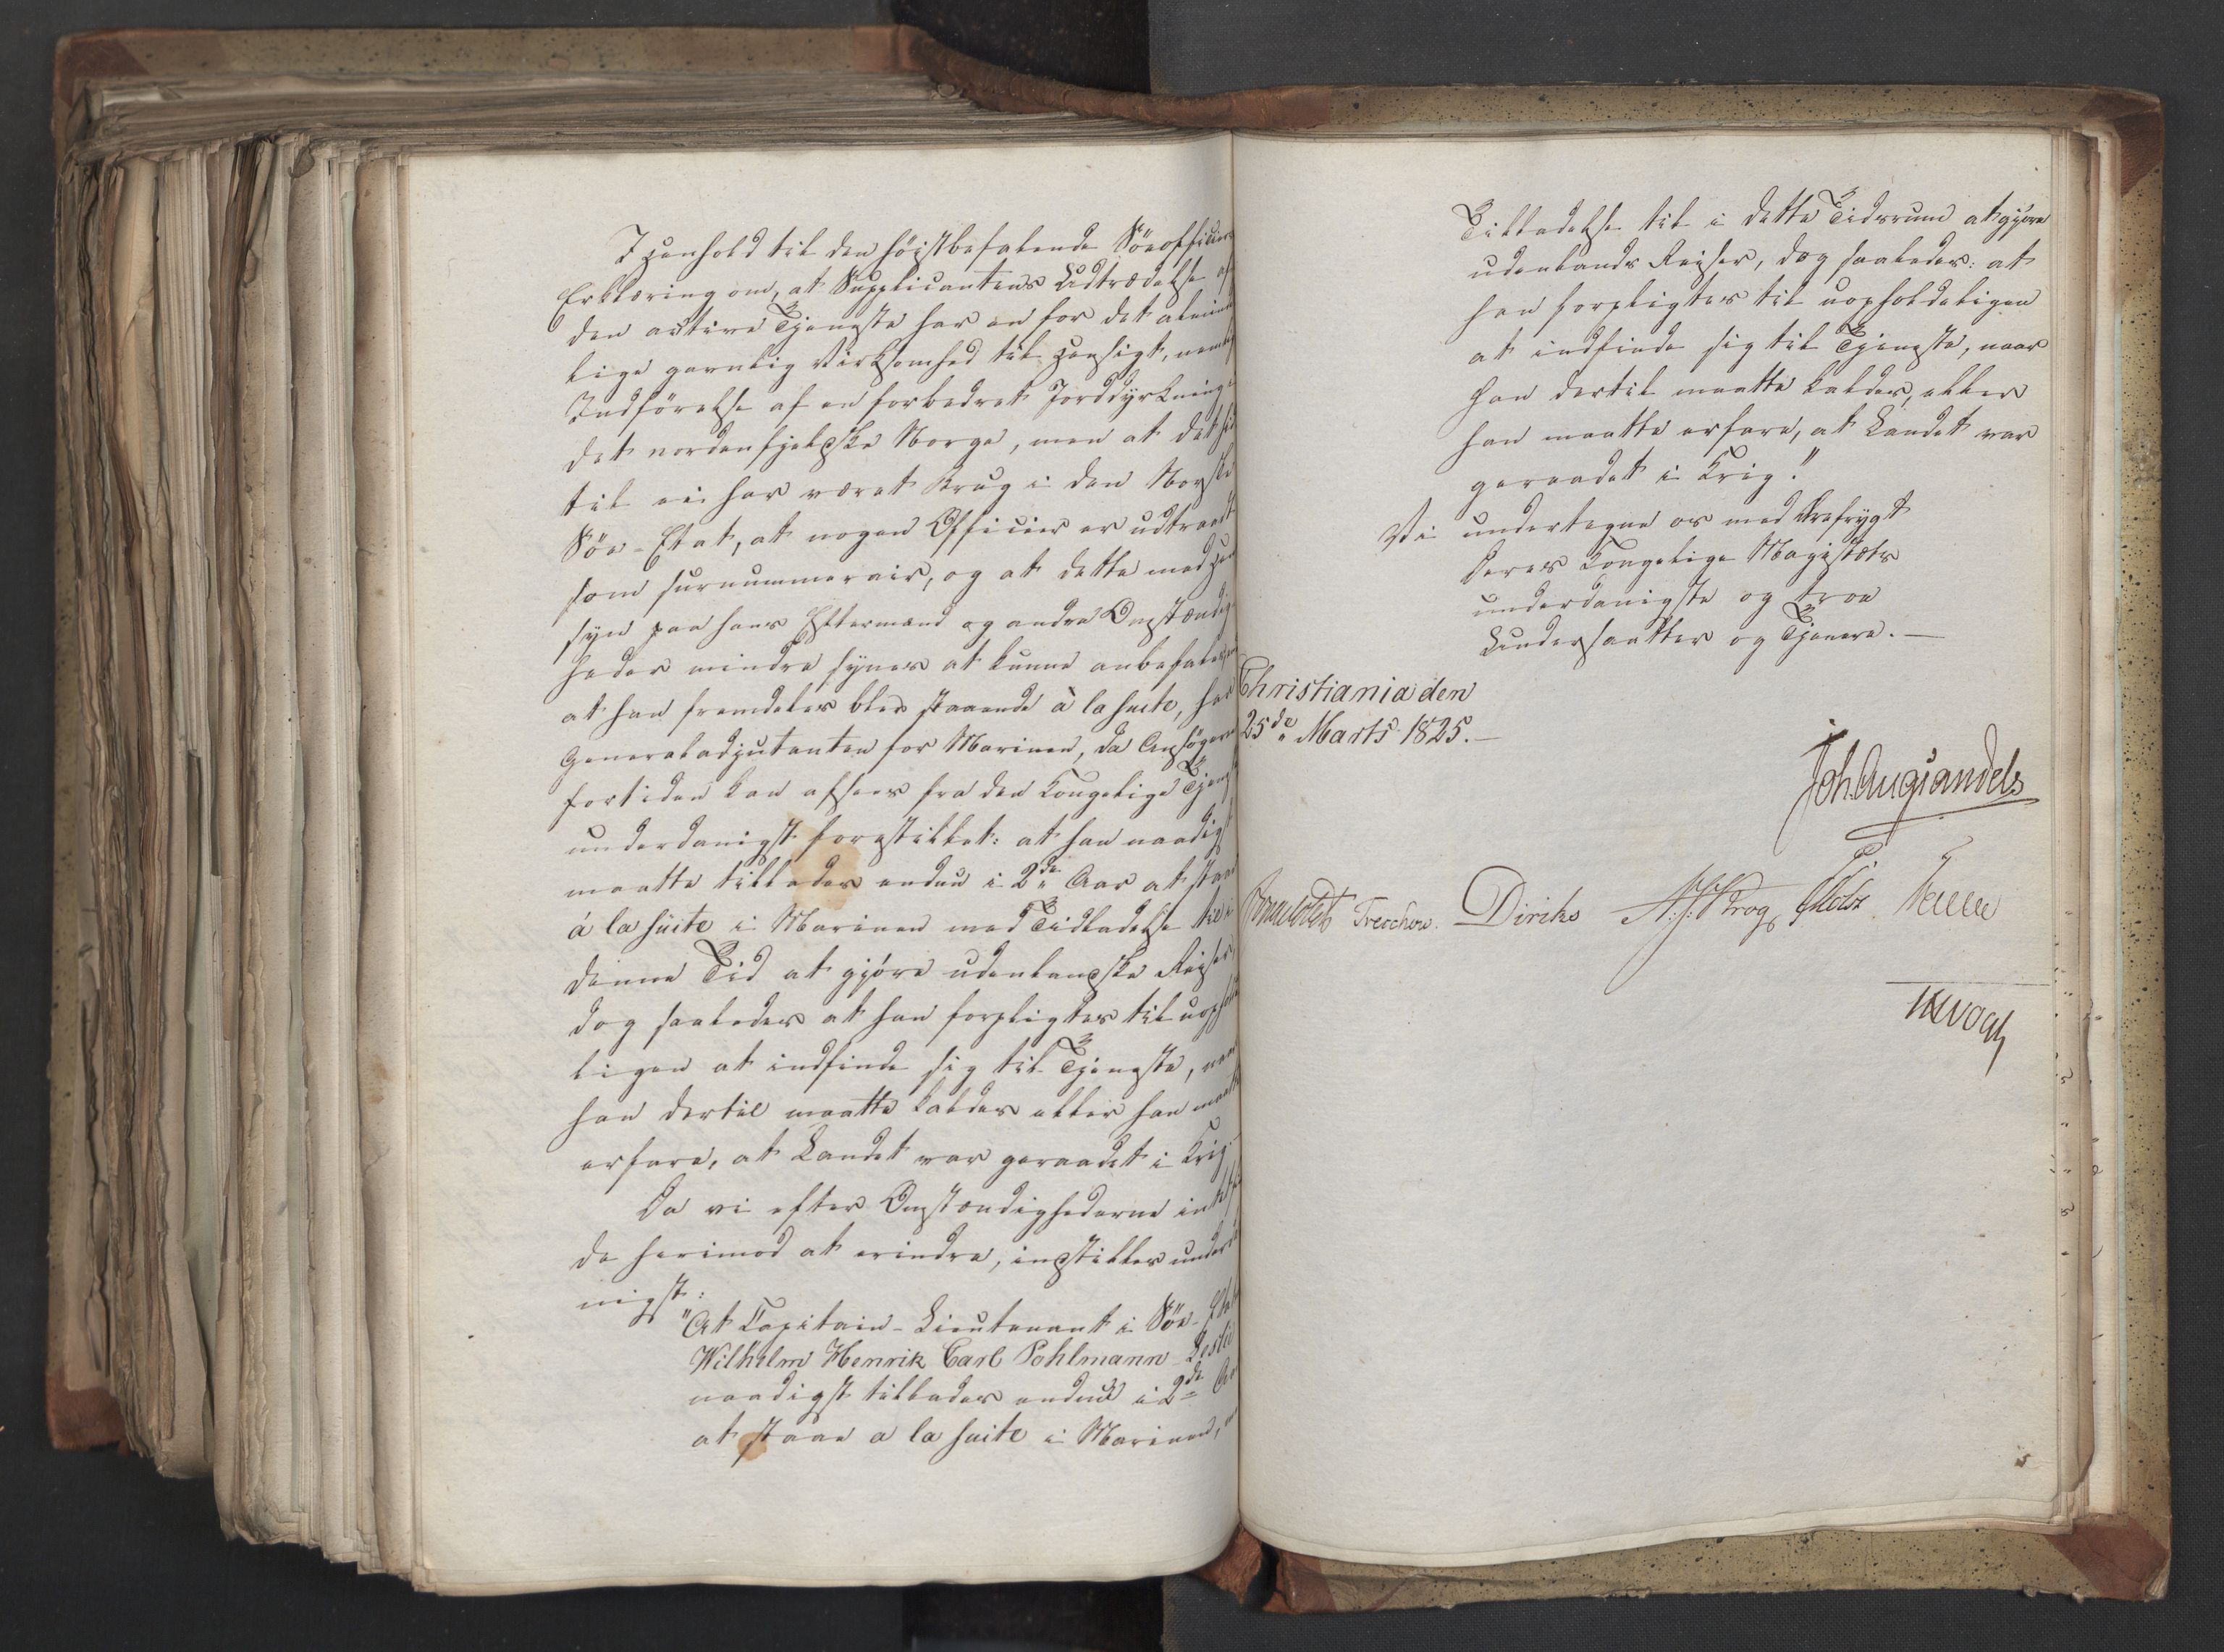 I Henhold til den höistbefalende Söeofficiers
Erklæring om, at Supplicantens Udtrædelse af
den active Tjeneste har en for det almind
lige gavnlig Virksomhed til Hensigt, nemlig
Indförelse af en forbedret Jorddyrkning i
det nordenfjeldske Norge, men at det hid
til ei har været Brug i den Norske
Söe-Etat, at nogen Officier er udtraadt
som surnummerair, og at dette med Hen
syn paa hans Eftermand og andre Omstændig
heder mindre synes at kunne anbefales,
at han fremdeles blev staaende à la suite, har
Generaladjutanten for Marinen, da Ansögeren
fortiden kan afsees fra den Kongelige Tjeneste
underdanigst forestillet: at han naadigst
maatte tillades endnu i 2de Aar at staae
á la suite i Marinen med Tilladelse til i
denne Tid at gjöre udenlandske Reiser,
dog saaledes at han forpligtes til uophold
ligen at indfinde sig til Tjeneste, naar
han dertil maatte kaldes eller han maatte
erfare, at Landet var geraadet i Krig.
Da vi efter Omstændighederne intet
de herimod at erindre, indstilles underda
nigst:
"At Capitain-Lieutenant i Söe-Etaten
Wilhelm Henrik Carl Pohlmann
naadigst tillades endnu i 2de Aar
at staae a la suite i Marinen,
Tilladelse til i dette Tidsrum at gjöre
udenlands Reiser, dog saaledes: at
han forpligtes til uopholdeligen
at indfinde sig til Tjeneste, naar
han dertil maatte kaldes, eller
han maatte erfare, at Landet var
geraadet i Krig."
Vi undertegne os med Ærefrygt
Deres Kongelige Majestæts
underdanigste og troe
Undersaatter og Tjenere.—
Christiania den
25de Marts 1825.—
Joh. Aug. Sandels
Treschow. Diriks Krog
Vogt